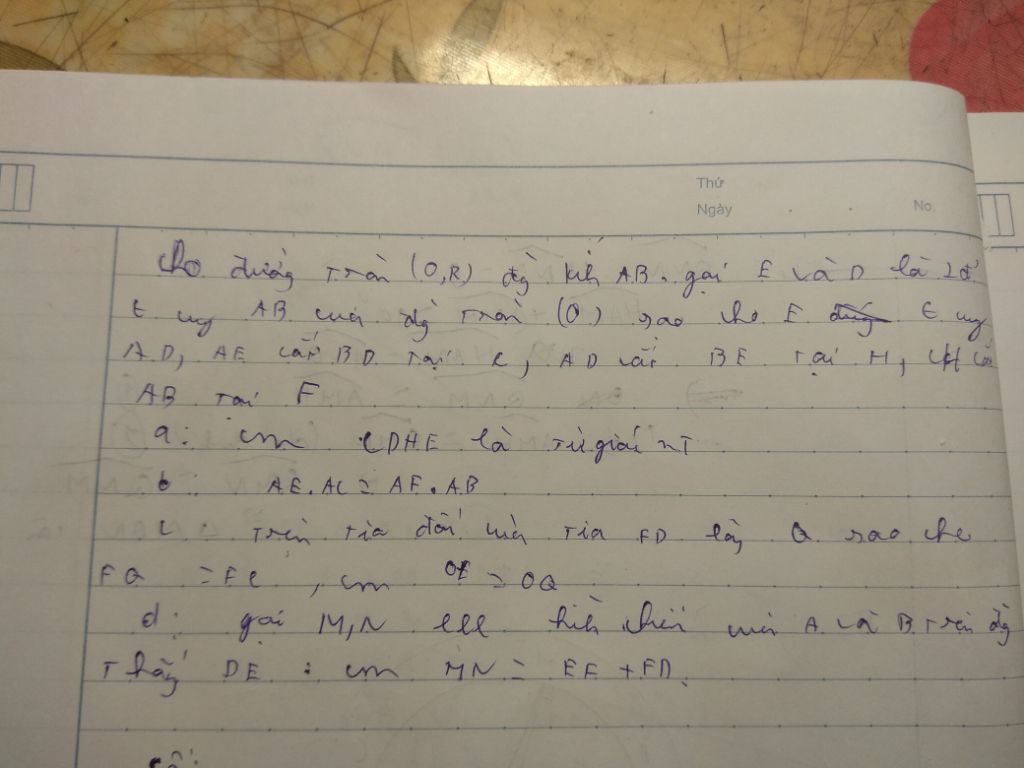 Thứ
Ngày
No.
Cho đường tròn (O,R) đg kíh AB. gọi E và D là 2 đ'
∈ ug AB của đg tròn (O) sao cho E ∈ ug
AD, AE cắt BD tại C, AD cắt BE tại H, CH cắ
AB tại F
a: cm CDHE là tứ giác nT
b: AE.AC = AF.AB
c trên tia đối của tia FD lấy Q sao cho
FQ = FE, cm OE = OQ
d: gọi M,N lll hìh chiếu của A và B trên đg
thẳg DE : cm MN = EF + FD.